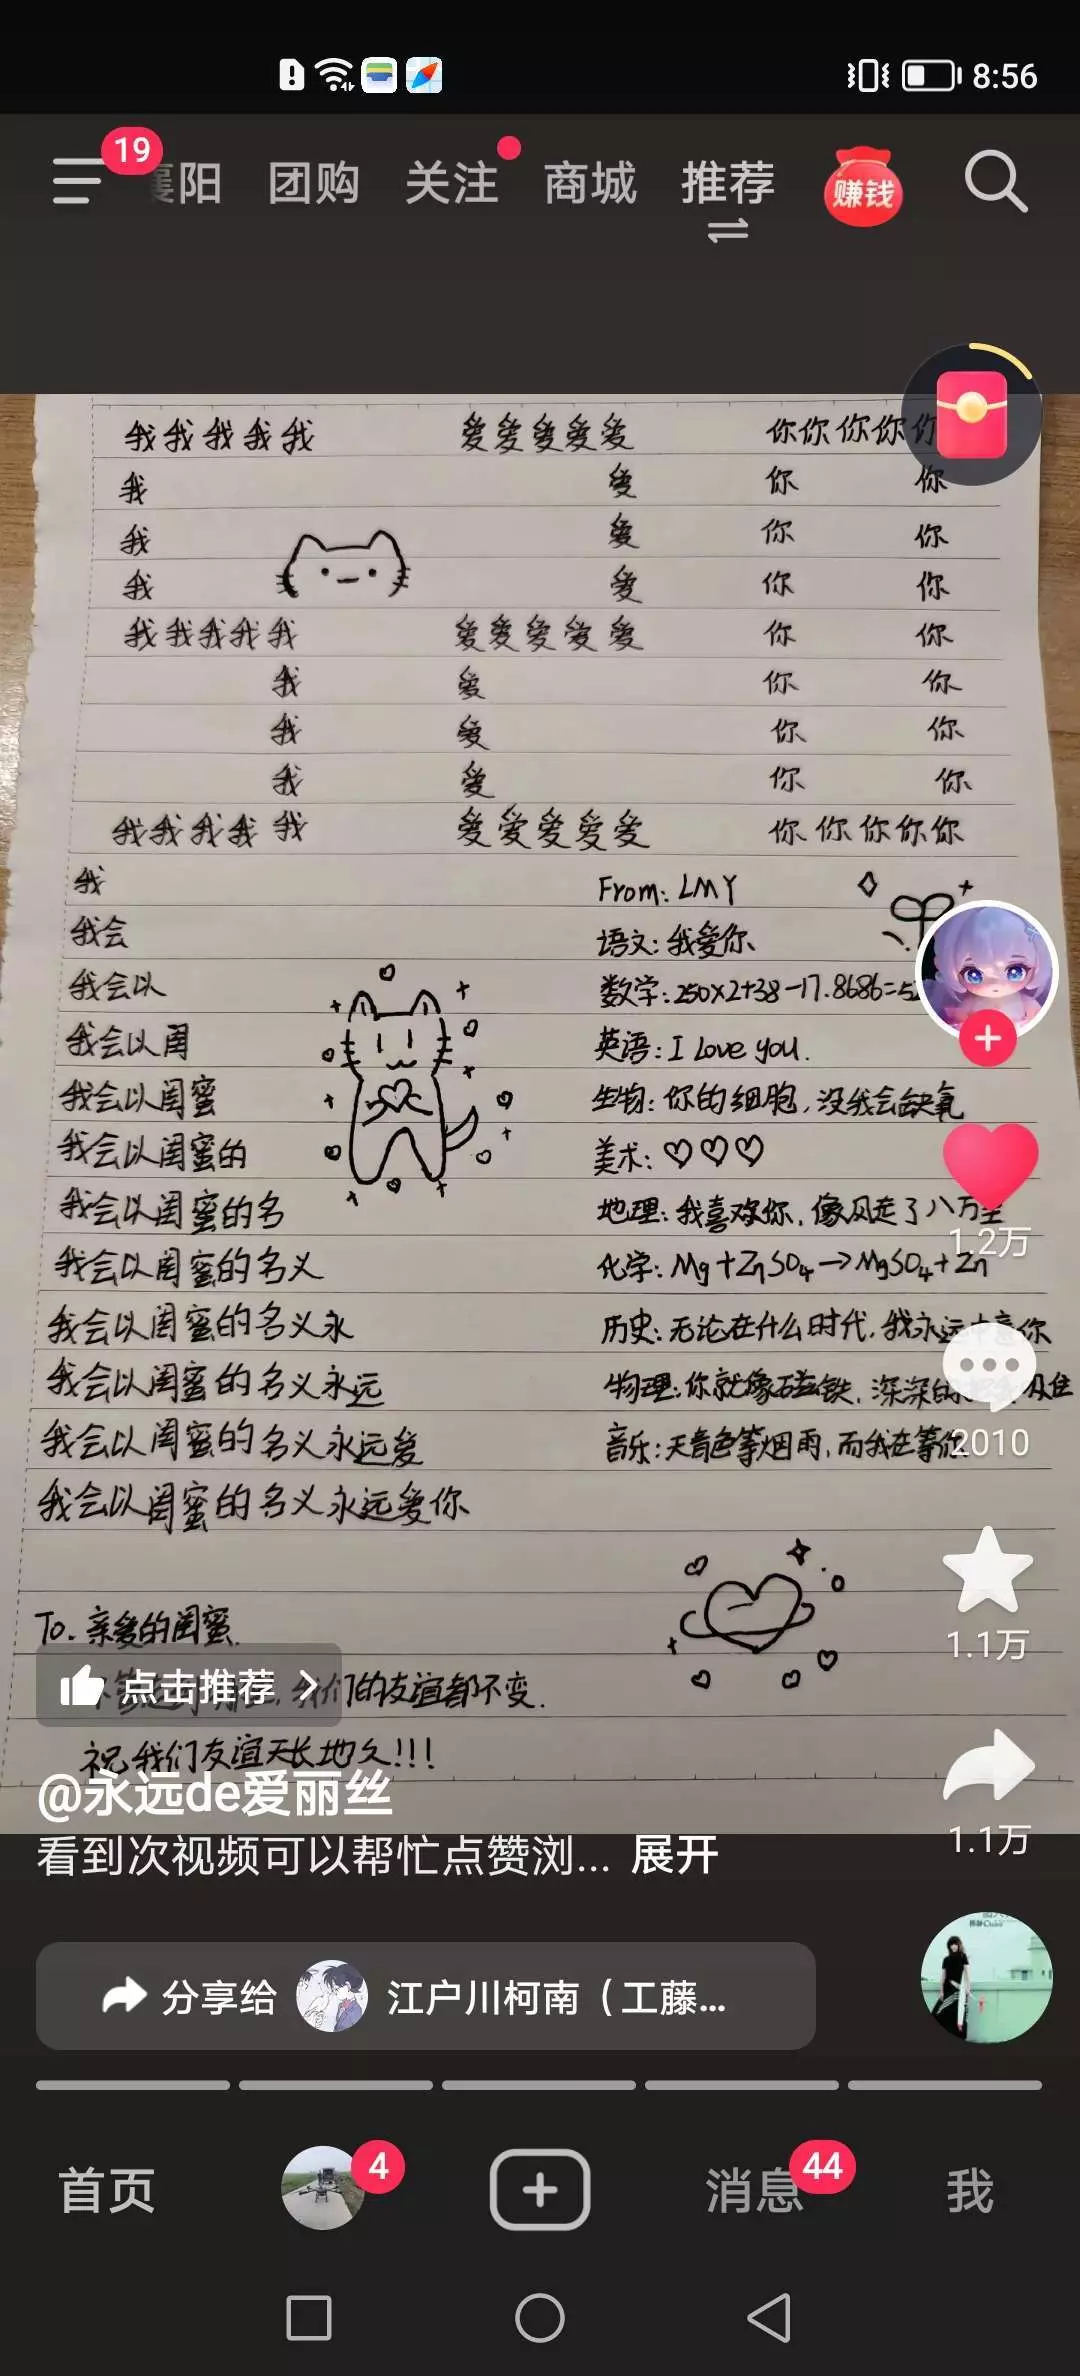 8:56
19
襄阳 团购 关注 商城 推荐 赚钱
我我我我我 爱爱爱爱爱 你你你你你
我 爱 你 你
我 爱 你 你
我 爱 你 你
我我我我我 爱爱爱爱爱 你 你
我 爱 你 你
我 爱 你 你
我 爱 你 你
我我我我我 爱爱爱爱爱 你你你你你
我
我会
我会以
我会以闺
我会以闺蜜
我会以闺蜜的
我会以闺蜜的名
我会以闺蜜的名义
我会以闺蜜的名义永
我会以闺蜜的名义永远
我会以闺蜜的名义永远爱
我会以闺蜜的名义永远爱你
From: LMY
语文:我爱你
数学:250×2+38-17.8686=52
英语:I Love you.
生物:你的细胞,没我会缺氧
美术:♡♡♡
地理:我喜欢你,像风走了八万里
化学:Mg+ZnSO4→MgSO4+Zn
历史:无论在什么时代,我永远中意你
物理:你就像磁铁,深深的把我吸住
音乐:天青色等烟雨,而我在等你
To.亲爱的闺蜜
我们的友谊都不变.
祝我们友谊天长地久!!!
1.2万
2010
1.1万
1.1万
点击推荐 >
@永远de爱丽丝
看到次视频可以帮忙点赞浏... 展开
分享给 江户川柯南（工藤...
首页 4 消息 44 我